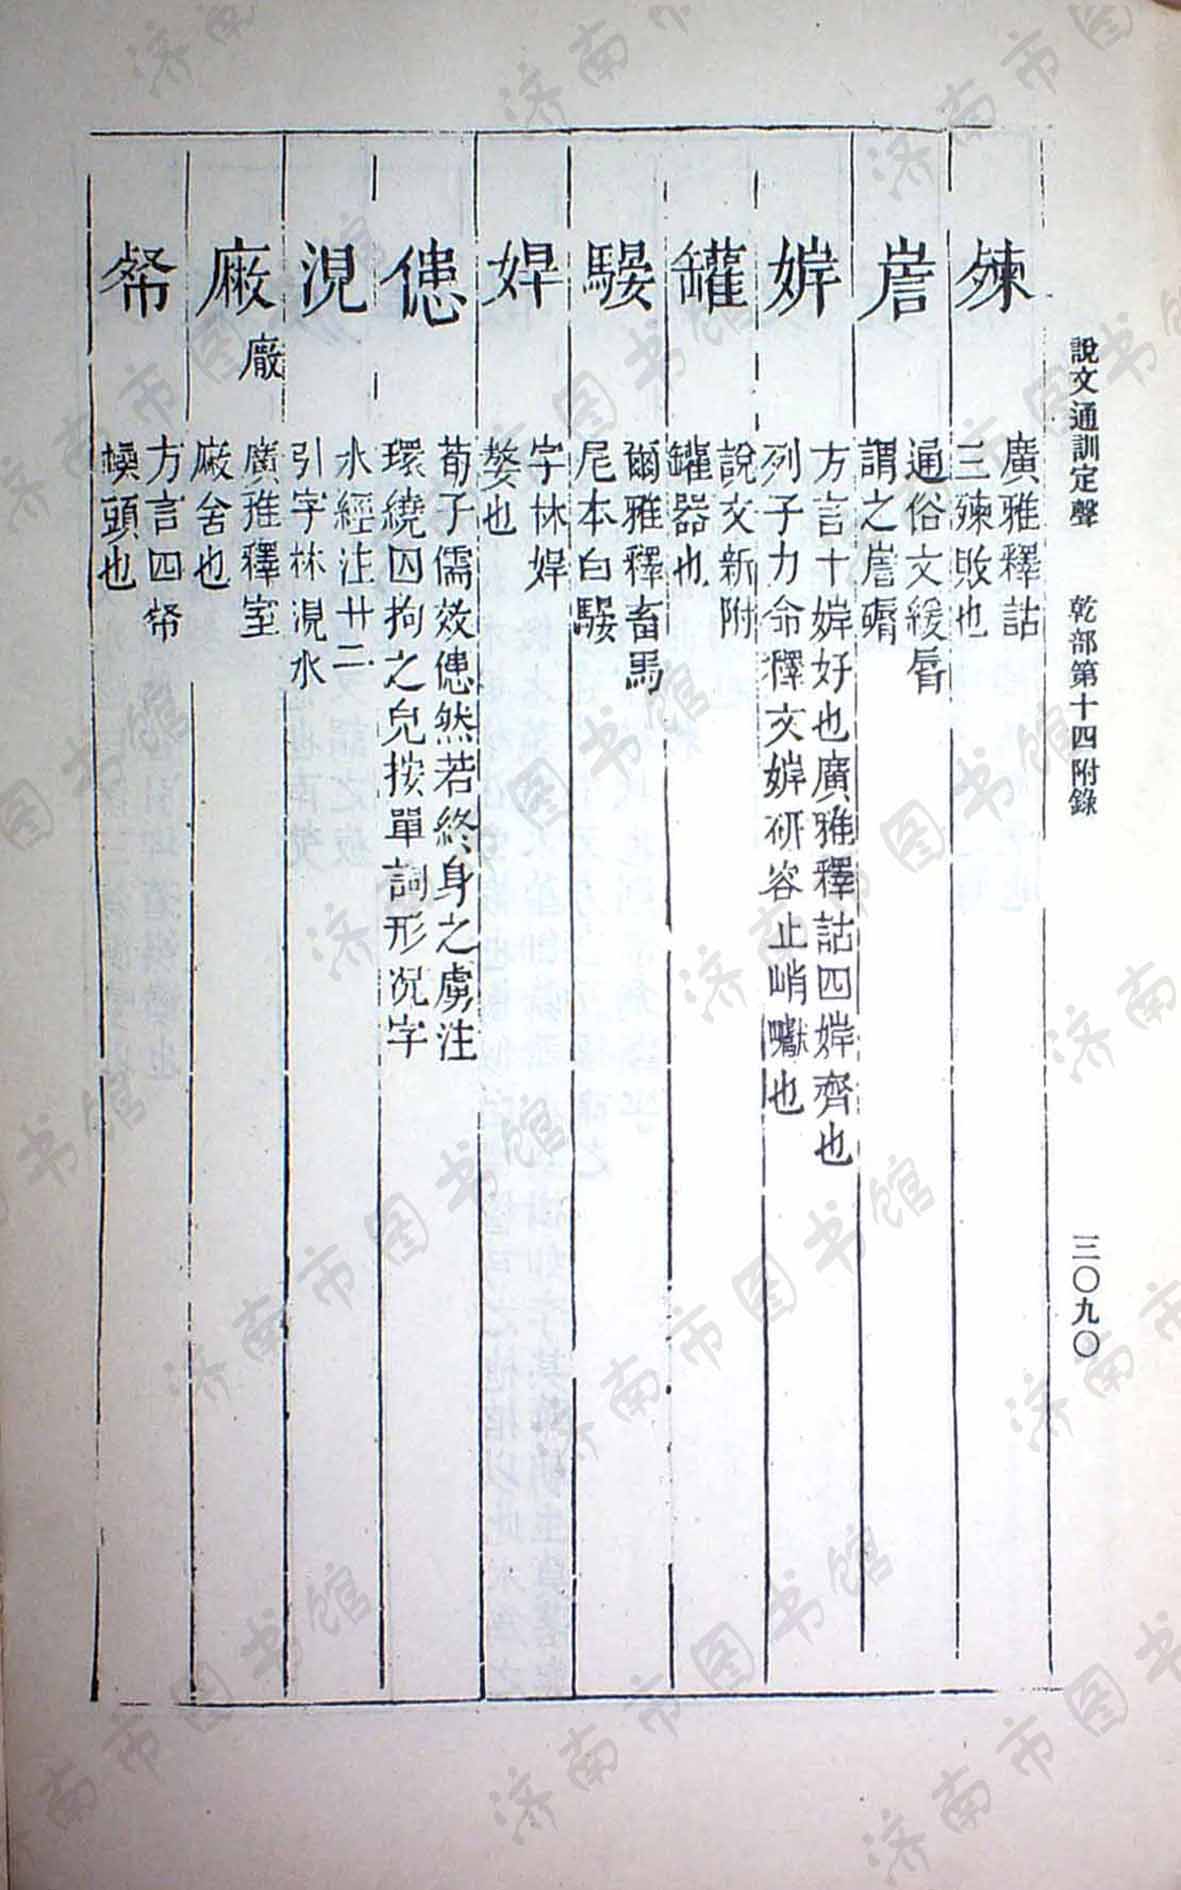 說文通訓定聲 乾部第十四附錄 三〇九〇
㱫
廣雅釋詁
三㱫敗也
通俗文緩脣
謂之
婩
方言十婩好也廣雅釋詁四婩齊也
列子力命釋文婩研容止峭巘也
罐
說文新附
罐器也
騴
爾雅釋畜馬
尼本白騴
娨
字林娨
婺也
荀子儒效然若終身之虜注
環繞囚拘之皃按單詞形況字
涀
水經注廿二
引字林涀水
廠
廣雅釋室
舍也
方言四
頭也